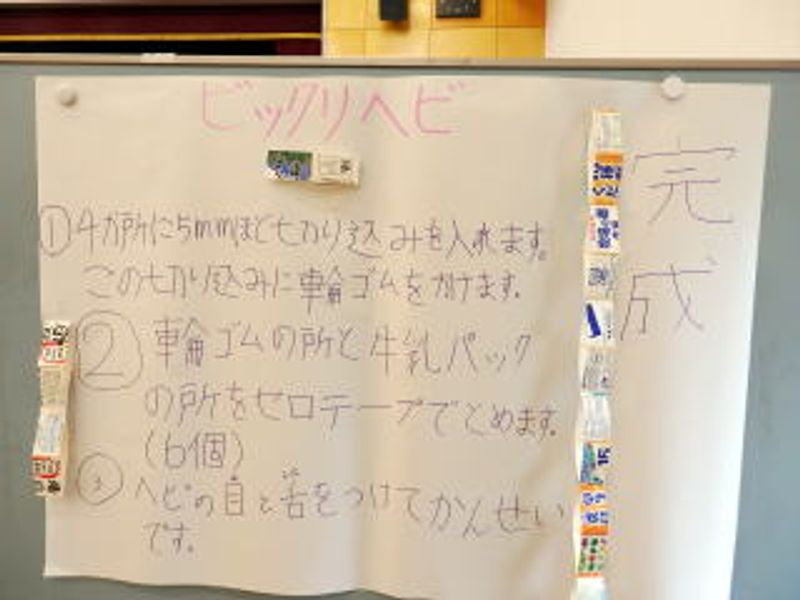 ビックリヘビ
①4か所に5mmほど切り込みを入れます。
この切り込みに輪ゴムをかけます。
②輪ゴムの所と牛乳パック
の所をセロテープでとめます。
(6個)
③ヘビの目と舌をつけてかんせい
です。
完成